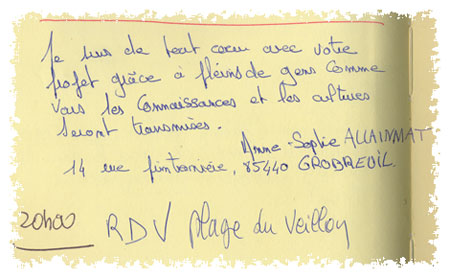 Je suis de tout cœur avec votre
projet grâce à pleins de gens comme
vous les connaissances et les cultures
seront transmises.
Anne-Sophie ALLAINMAT
14 rue , 85440 GROBREUIL.
20h00
RDV plage du Veillon